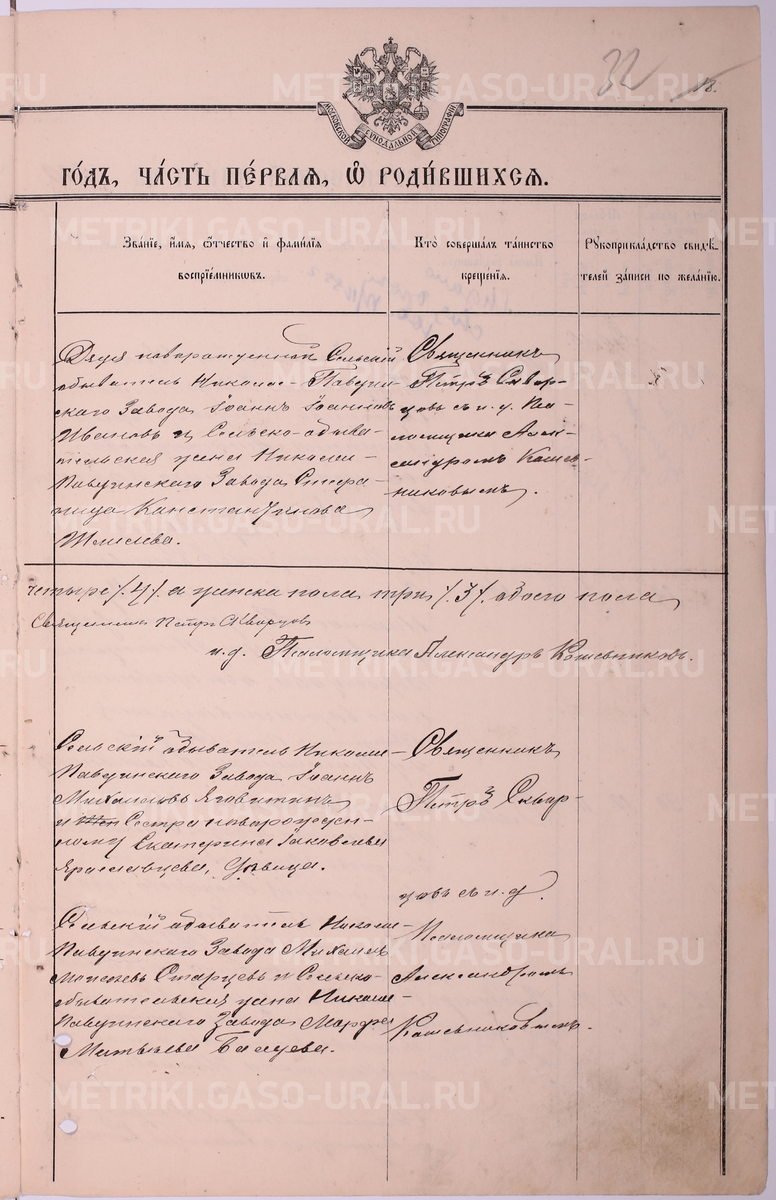 32 18.
МОСКОВСКОЙ СѴНОДАЛЬНОЙ ТИПОГРАФІИ
го́дъ, ча́сть пе́рвая, ѡ҆ роди́вшихся.
Зва́нїе, и҆́мя, ѻ҆́тчество и҆ фами́лїя
воспрїе́мниковъ.
Кто̀ соверша́лъ та́инство
креще́нїя.
Рукоприкла́дство свидѣ́телей за́писи по жела́нїю.
Дядя новорожденной Сельскій
обыватель Николае-Павдинскаго Завода Іоаннъ Іоанновъ
Ивановъ и Сельско-обыва-
тельская жена Николае-
Павдинскаго Завода
Константинова
Священникъ
Петръ Сквор-
цовъ съ и. д. Пса-
ломщика Алек-
сандромъ Кошев-
никовымъ.
четыре /.4/. а женска пола три /.3/. обоего пола
Священникъ Петръ Скворцовъ
и.д. Псаломщика Александръ Кошевниковъ.
Сельскій обыватель Николае-
Павдинскаго Завода Іоаннъ
Михаиловъ
и Сестра новорожден-
ному Екатерина Іаковлева
Ярославцева, дѣвица.
Священникъ
Петръ Сквор-
цовъ съ и. д.
Псаломщика
Александромъ
Кошевниковымъ.
Сельскій обыватель Николае-
Павдинскаго Завода Михаилъ
Старцевъ и Сельско-
обывательская жена Николае-
Павдинскаго Завода Марфа
Матвѣева
METRIKI.GASO-URAL.RU